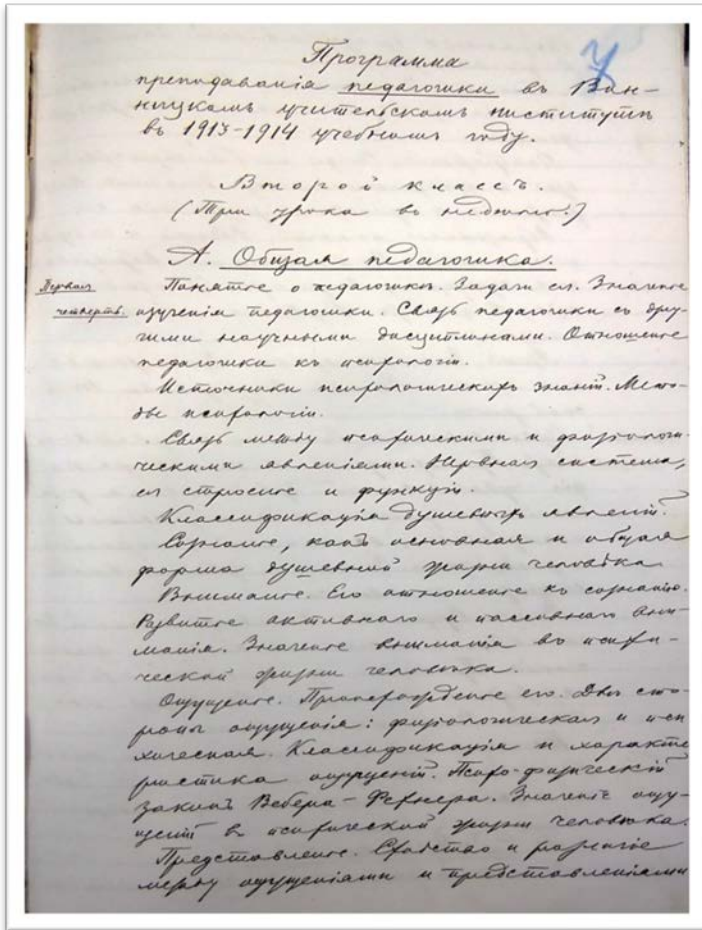 Программа
преподаванія педагогики въ Вин-
ницкомъ учительскомъ институтѣ
въ 1913-1914 учебномъ году.
Второй классъ.
(Три урока въ недѣлю.)
А. Общая педагогика.
Первая
четверть.
Понятіе о педагогикѣ. Задачи ея. Значеніе
изученія педагогики. Связь педагогики съ дру-
гими научными дисциплинами. Отношеніе
педагогики къ психологіи.
Источники психологическихъ знаній. Мето-
ды психологіи.
Связь между психическими и физіологи-
ческими явленіями. Нервная система,
ея строеніе и функціи.
Классификація душевныхъ явленій.
Сознаніе, какъ основная и общая
форма душевной жизни человѣка
Вниманіе. Его отношеніе къ сознанію.
Развитіе активнаго и пассивнаго вни-
манія. Значеніе вниманія въ психи-
ческой жизни человѣка.
Ощущеніе. Происхожденіе его. Двѣ сто-
роны ощущенія: физіологическая и пси
хическая. Классификація и характе
ристика ощущеній. Психо-физическій
законъ Вебера-Фехнера. Значеніе ощу-
щеній въ психической жизни человѣка.
Представленіе. Сходство и различіе
между ощущеніями и представленіями